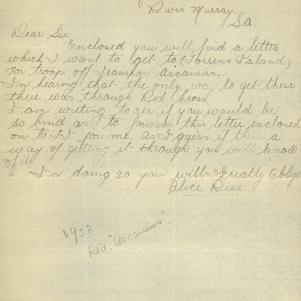 River Murray
SA
Dear Sir
Enclosed you will find a letter
which I want to get to (Torrens Island)
For troop off Transport Ascanius.
I'm hearing that the only way to get these
there was through Red Cross.
I am writing to see if you would be
so kind as to forward this letter enclosed
on to it for me. As I guess if there a
way of getting it through you will know
of it
In doing so you will Greatly Oblige
Alice
6932
"Ascanius".